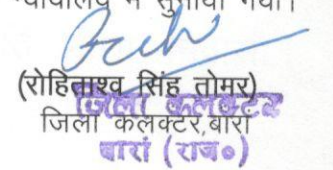 न्यायालय में सुनाया गया।
(रोहिताश्व सिंह तोमर)
जिला कलक्टर
जिला कलक्टर,बारां
बारां (राज०)